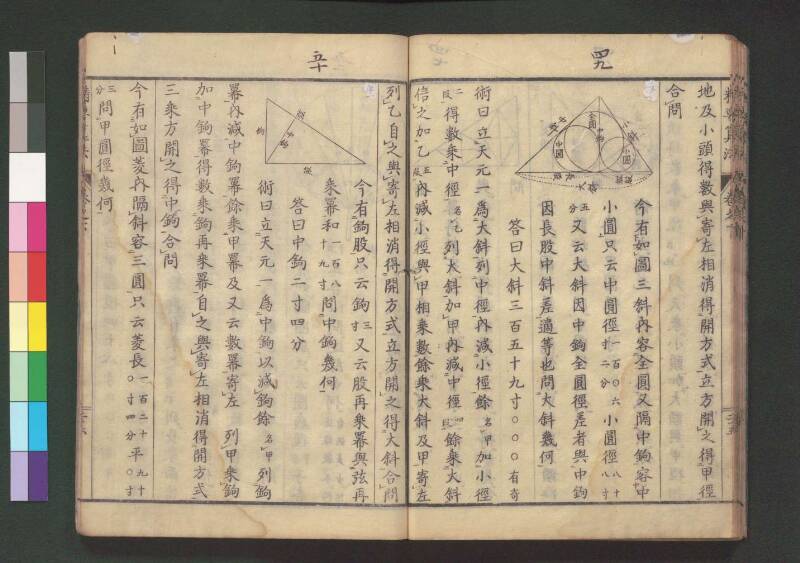 四九
地及小頭得數與寄左相消得開方式立方開之得甲徑
合問
今有如圖三斜內容全圓又隔中鉤容中
小圓只云中圓徑一百〇六寸二分小圓徑八十八寸
五分又云大斜因中鉤全圓徑差者與中鉤
因長股中斜差適等也問大斜幾何
答曰大斜三百五十九寸〇〇〇有奇
術曰立天元一為大斜列中徑內減小徑餘名甲加小徑
二段得數乘中徑名乙列大斜加甲內減中徑四段餘乘大斜
倍之加乙五段內減小徑與甲相乘數餘乘大斜及甲寄左
列乙自之與寄左相消得開方式立方開之得大斜合問
五十
今有鉤股只云鉤三寸又云股再乘冪與弦再
乘冪和一百八十九寸問中鉤幾何
答曰中鉤二寸四分
術曰立天元一為中鉤以減鉤餘名甲列鉤
冪內減中鉤冪餘乘甲冪及又云數冪寄左列甲乘鉤
加中鉤冪得數乘鉤再乘冪自之與寄左相消得開方式
三乘方開之得中鉤合問
今有如圖菱內隔斜容三圓只云菱長一百二十〇寸四分平九十〇寸
三分問甲圓徑幾何